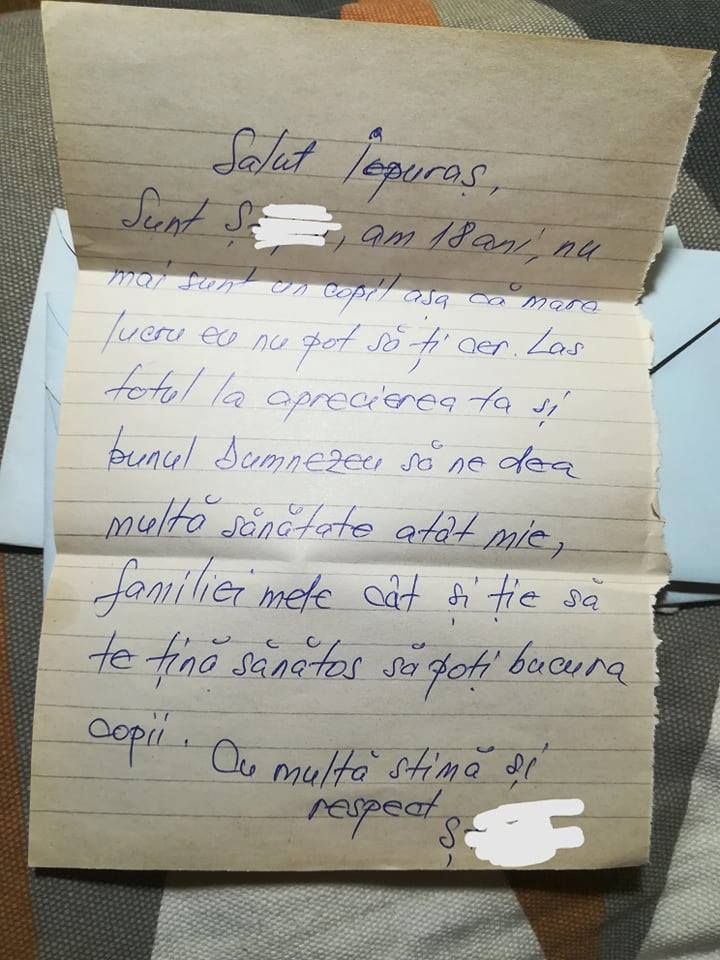 Salut Iepuraș,
Sunt Ș, am 18 ani, nu
mai sunt un copil așa că mare
lucru eu nu pot să ți cer. Las
totul la aprecierea ta și
bunul Dumnezeu să ne dea
multă sănătate atât mie,
familiei mele cât și ție să
te țină sănătos să poți bucura
copii. Cu multă stimă și
respect
Ș